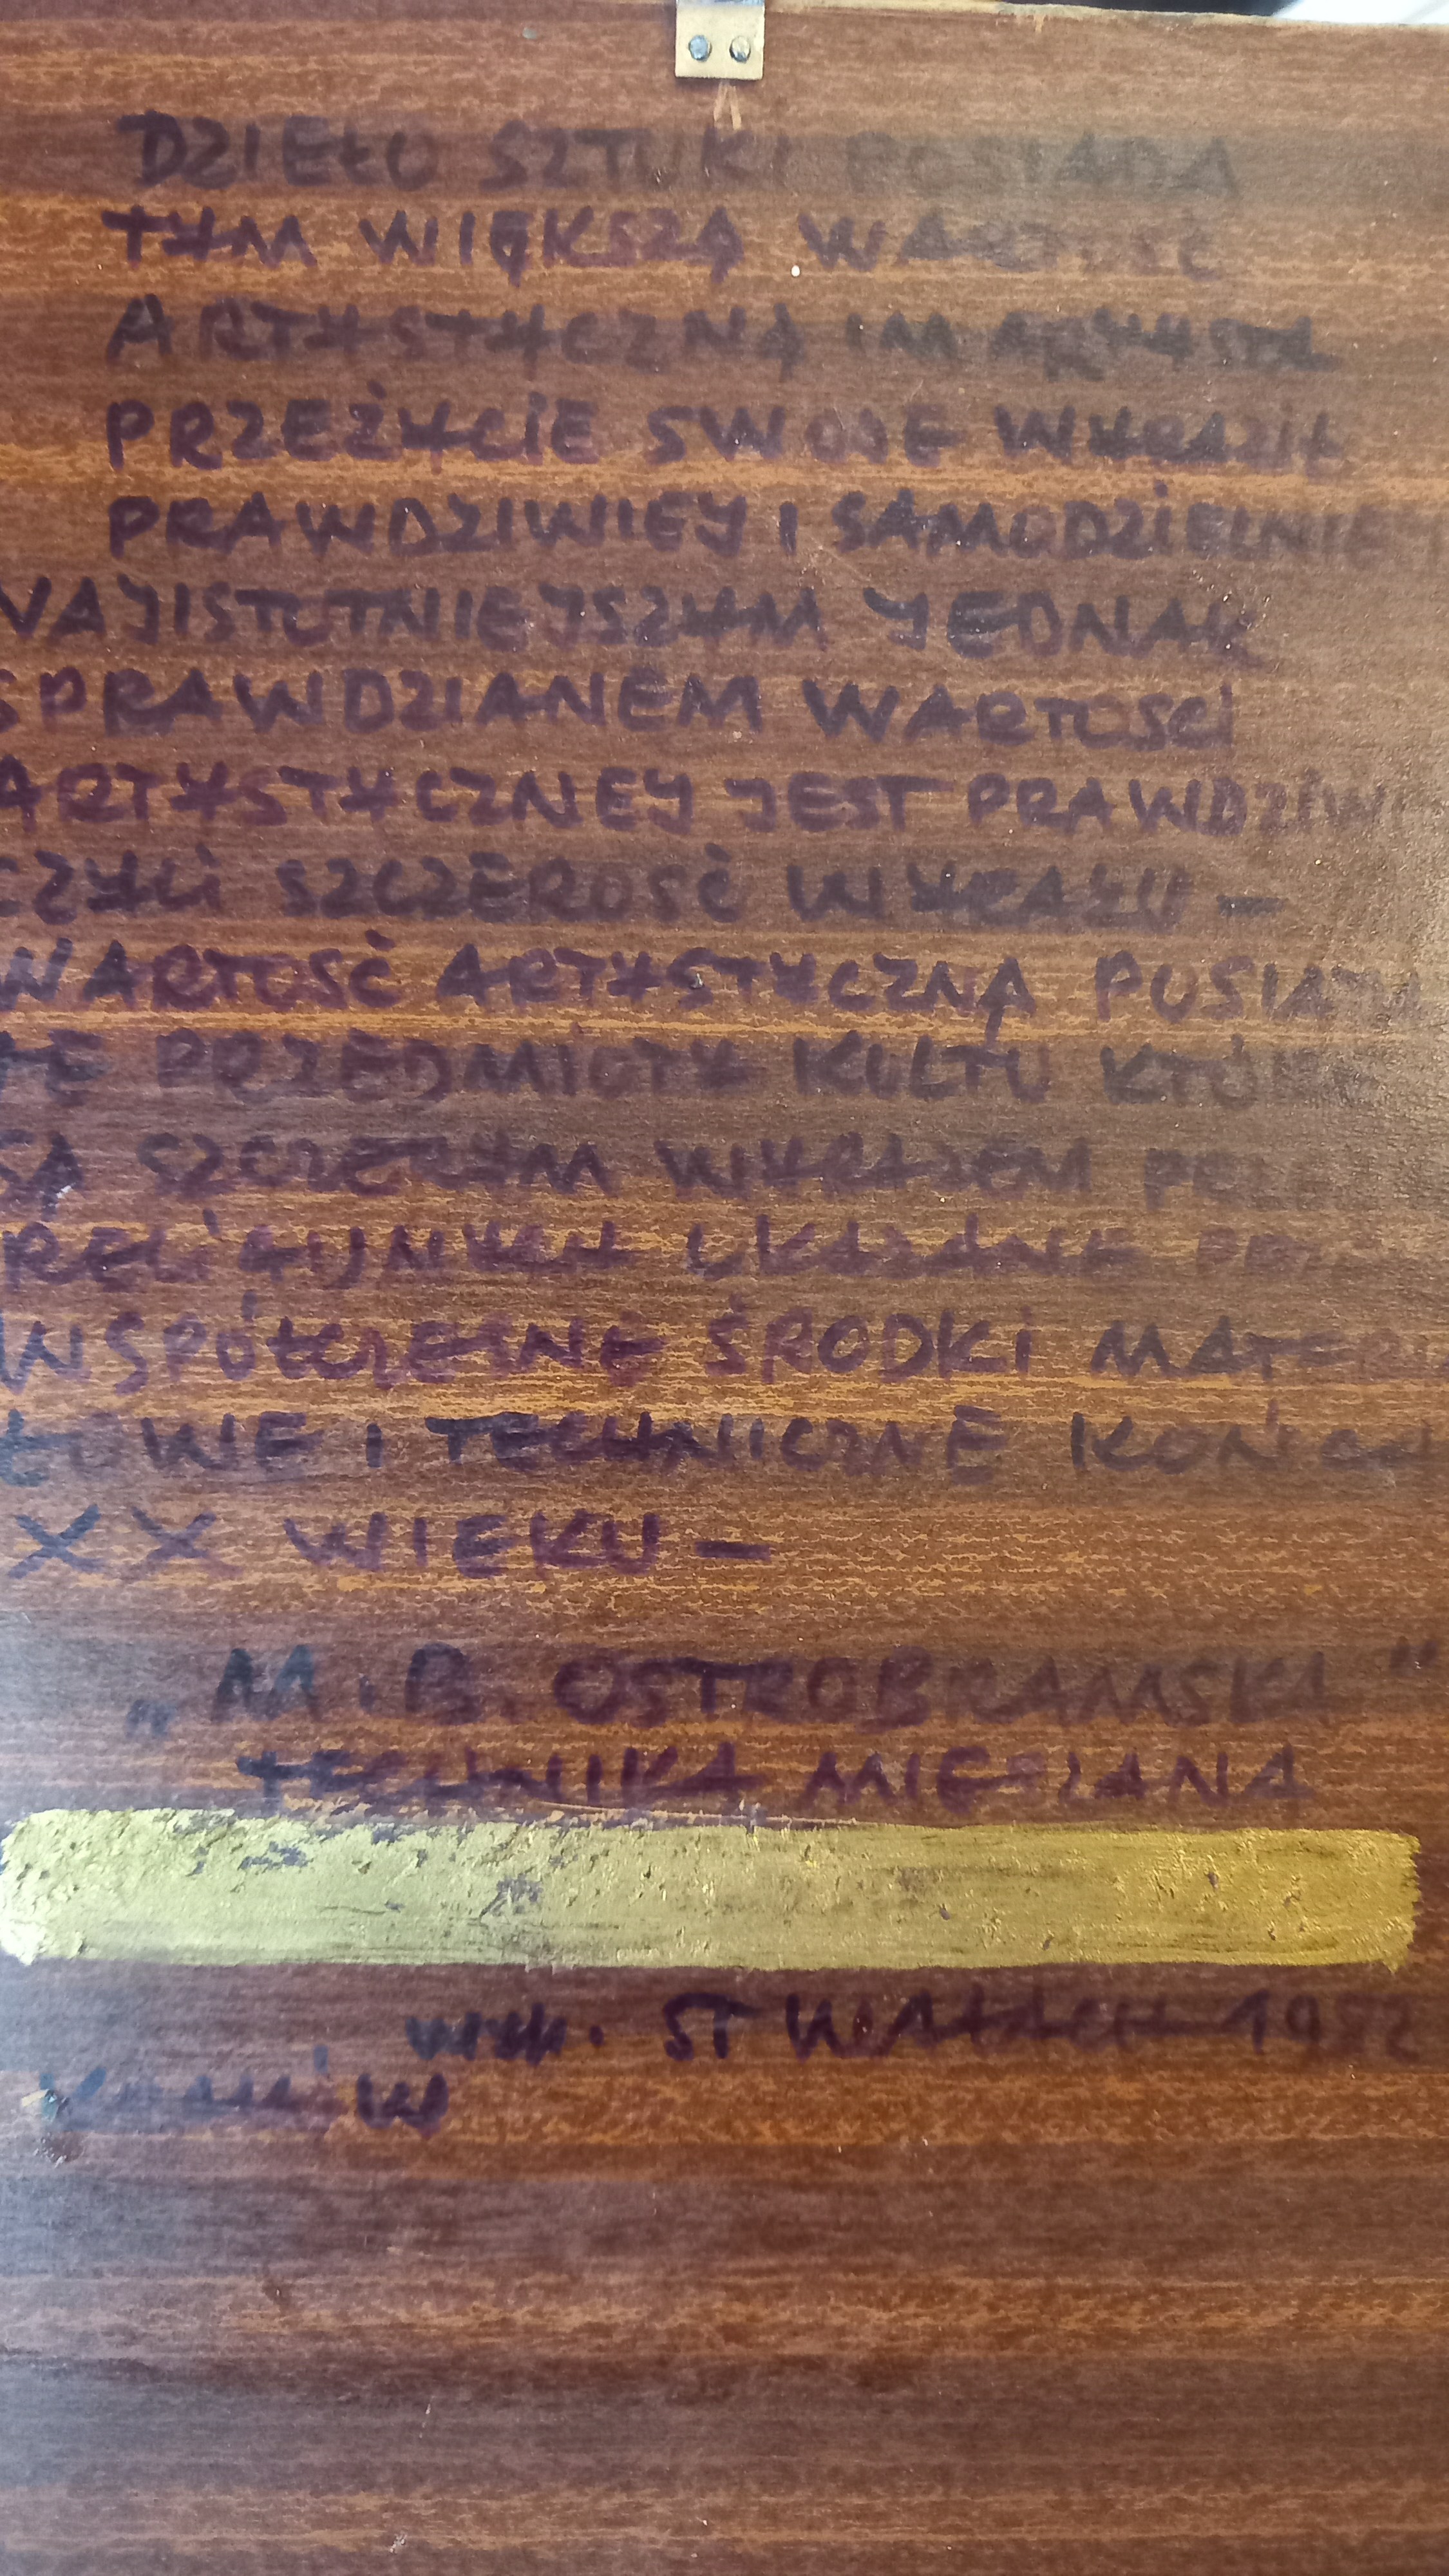 DZIEŁO SZTUKI POSIADA
TYM WIĘKSZĄ WARTOŚĆ
ARTYSTYCZNĄ IM ARTYSTA
PRZEŻYCIE SWOJE WYRAZIŁ
PRAWDZIWIEJ I SAMODZIELNIE
NAJISTOTNIEJSZYM JEDNAK
SPRAWDZIANEM WARTOŚCI
ARTYSTYCZNEJ JEST PRAWDZIW
CZYLI SZCZEROŚĆ WYRAZU –
WARTOŚĆ ARTYSTYCZNĄ
TE PRZEDMIOTY KULTU
SĄ SZCZERYM WYRAZEM
RELIGIJNYCH
WSPÓŁCZESNE ŚRODKI MATERIA
ŁOWE I TECHNICZNE KOŃCA
XX WIEKU –
„M.B. OSTROBRAMSKA"
TECHNIKA MIESZANA
WYK. ST WAŁACH 1982